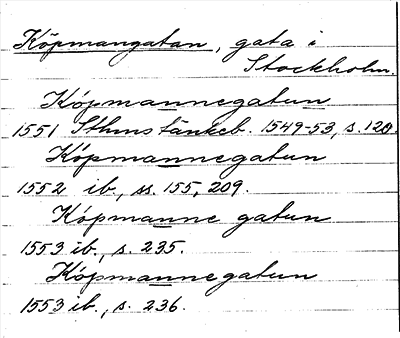 Köpmangatan, gata i
Stockholm.
Kópmannegatun
1551 Sthms tänkeb. 1549-53, s. 120.
Kópmannegatun
1552 ib., ss. 155, 209.
Kópmanne gatun
1553 ib., s. 235.
Kópmannegatun
1553 ib., s. 236.